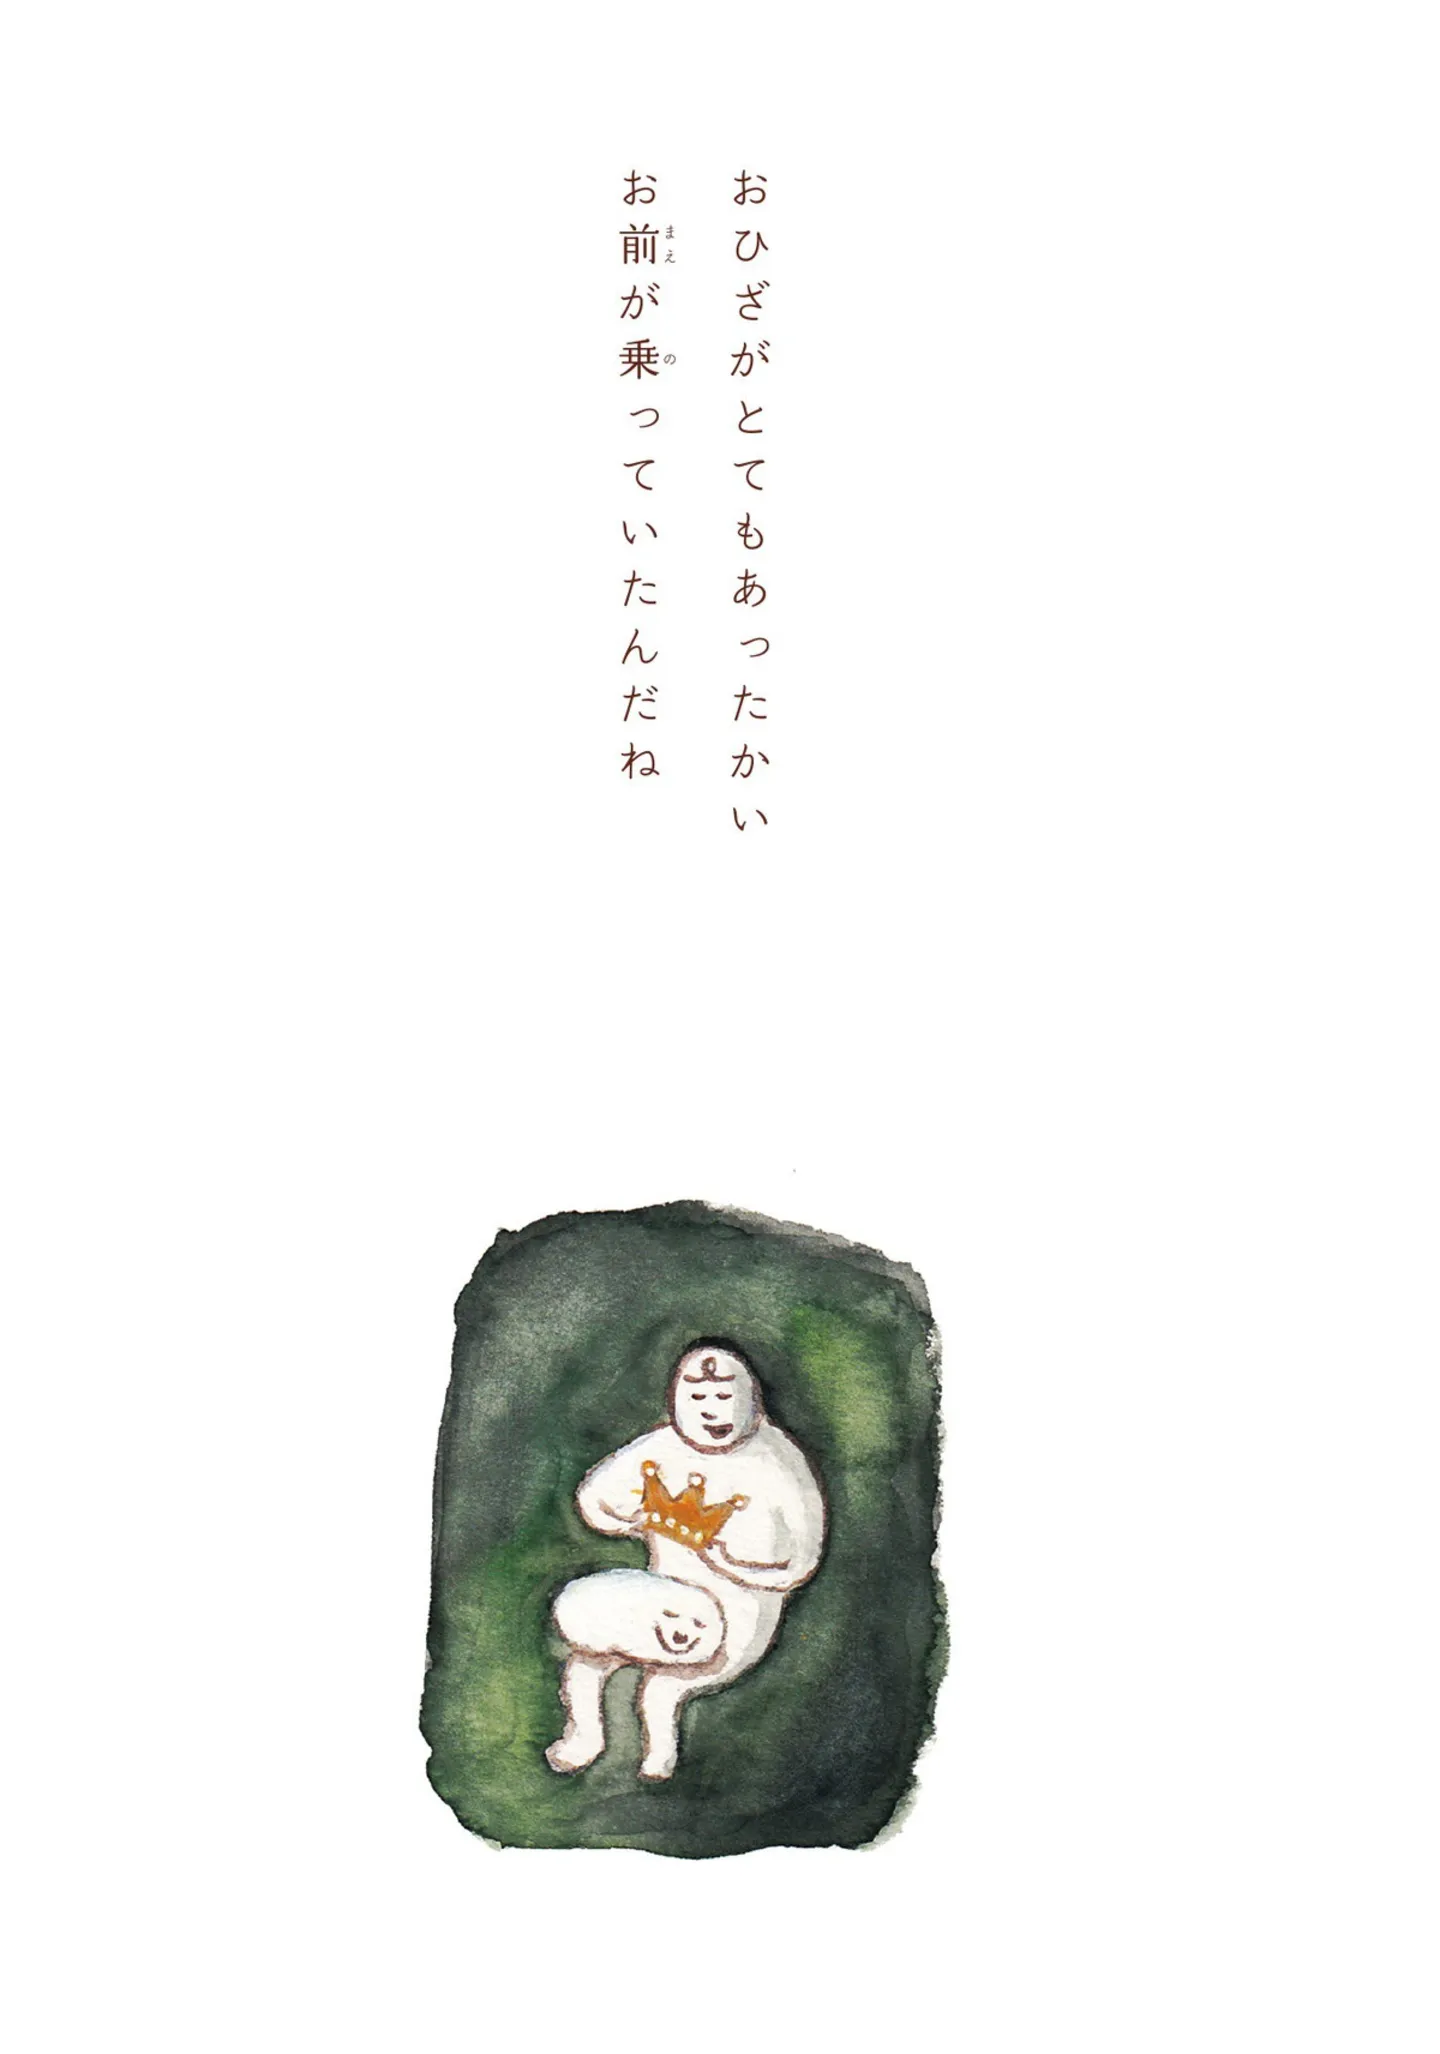 おひざがとてもあったかい
お前が乗っていたんだね